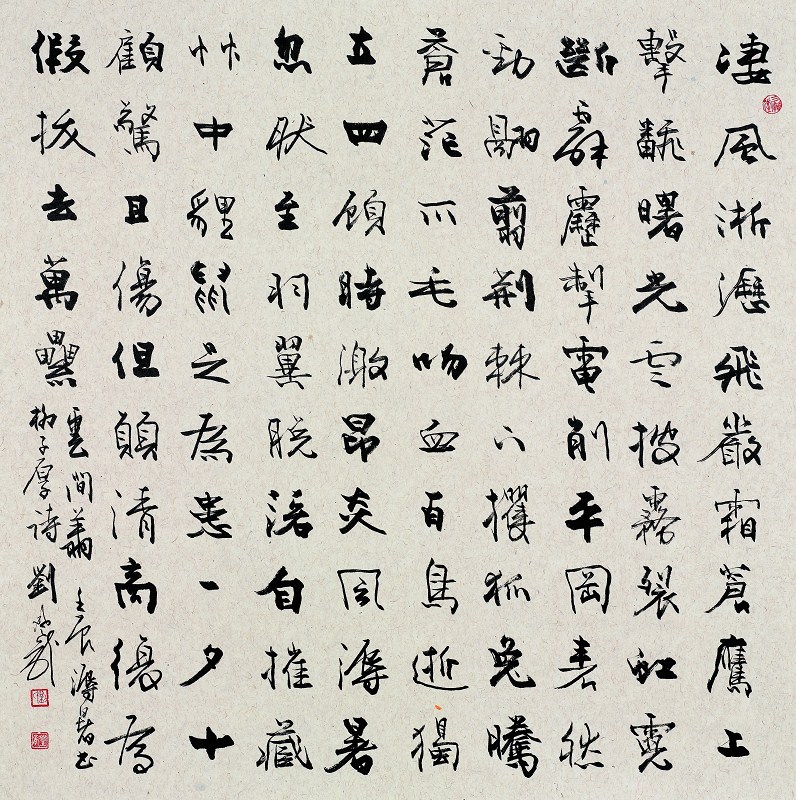 淒風淅瀝飛嚴霜蒼鷹上
擊翻曙光雲披霧裂虹霓
斷霹靂掣電削平岡砉然
勁翮翦荊棘下攫狐兔騰
蒼茫爪毛吻血百鳥逝獨
立四顧時激昂炎風溽暑
忽然至羽翼脫落自摧藏
艸中貍鼠足為患一夕十
顧驚且傷但願清高復為
假拔去萬纍
雲間翔 壬辰溽暑書
柳子厚詩 劉